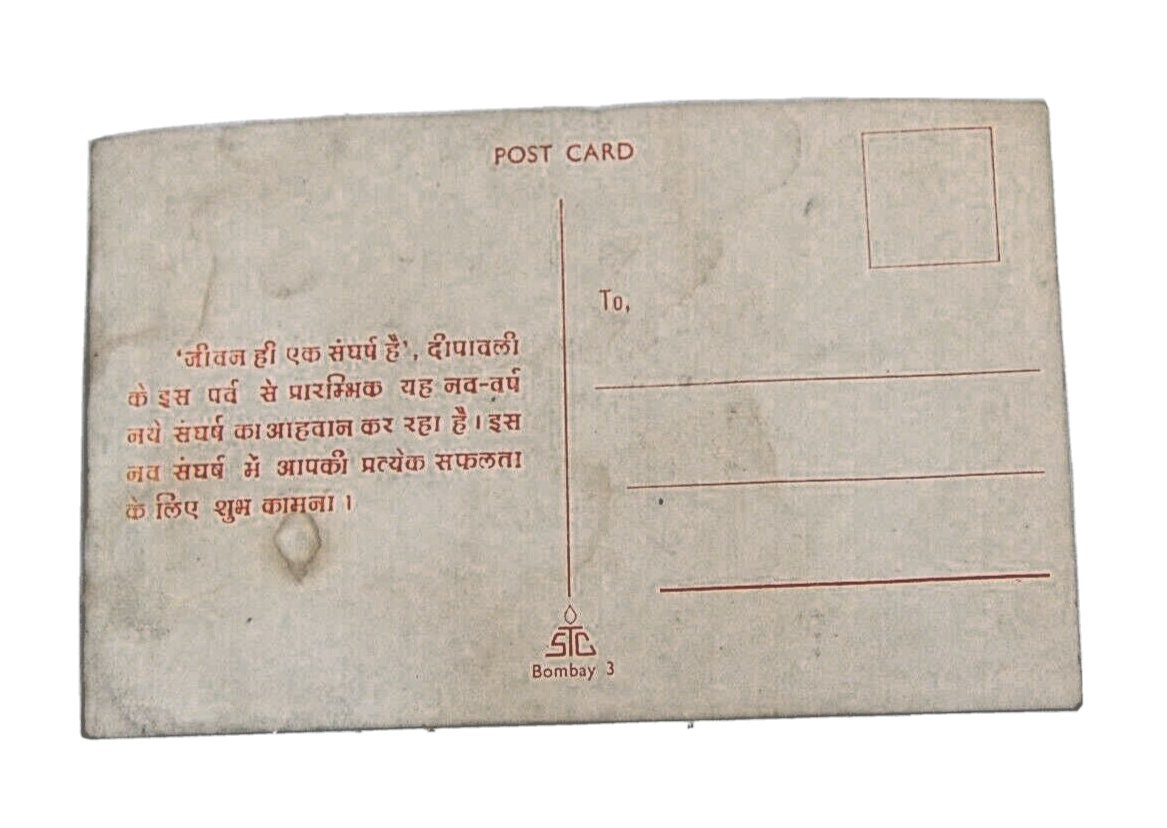 POST CARD
To,
'जीवन ही एक संघर्ष है', दीपावली
के इस पर्व से प्रारम्भिक यह नव-वर्ष
नये संघर्ष का आहवान कर रहा है। इस
नव संघर्ष में आपकी प्रत्येक सफलता
के लिए शुभ कामना।
STC
Bombay 3